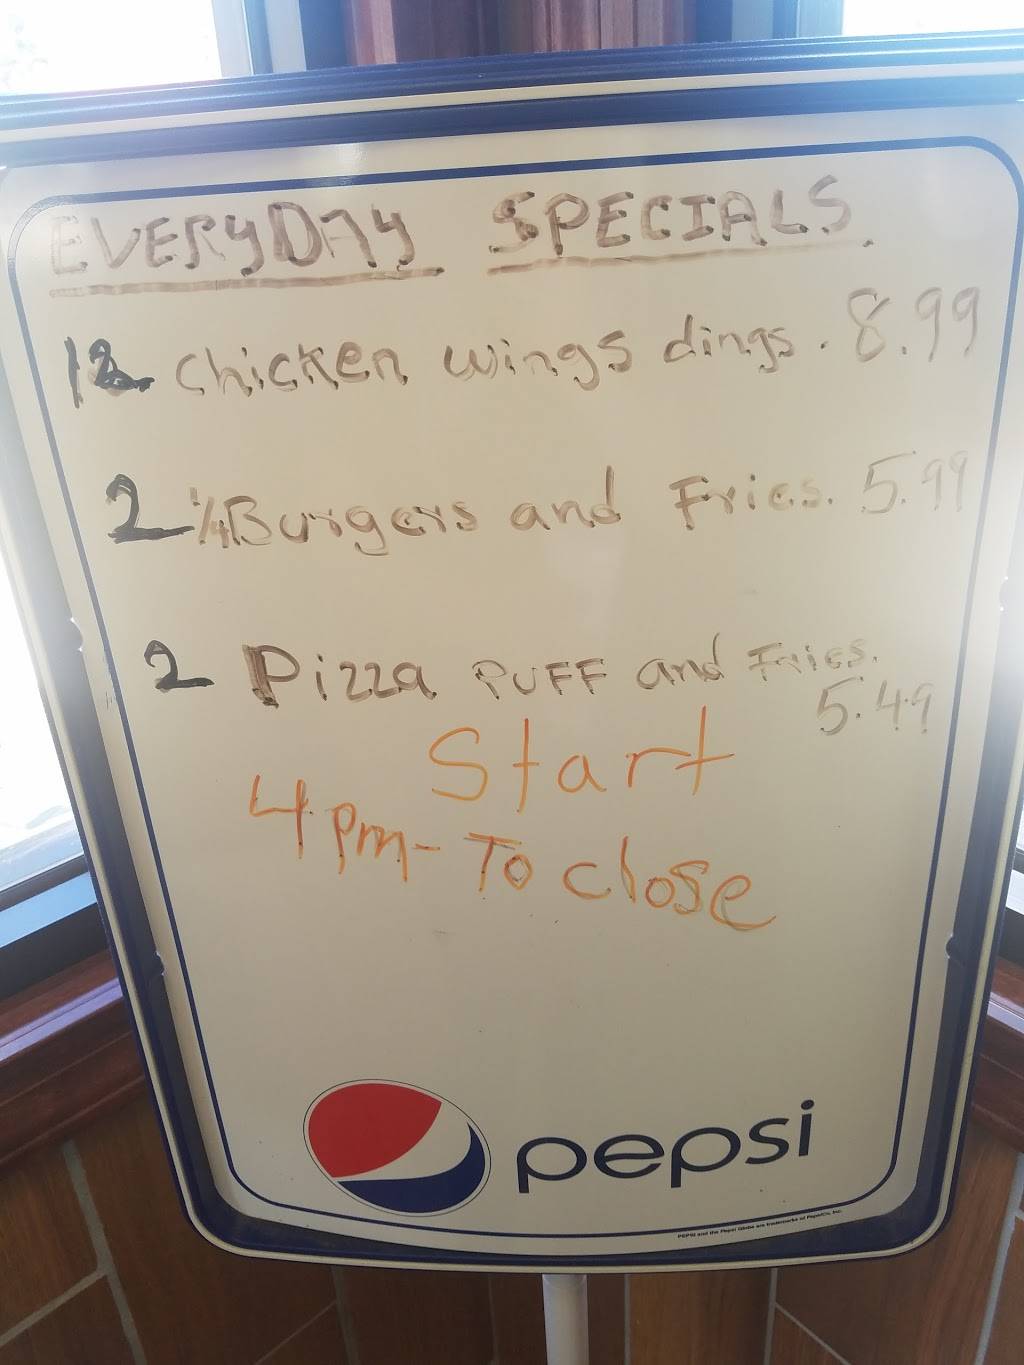 EVERYDAY SPECIALS.
12 chicken wings dings. 8.99
2 1/4 Burgers and Fries. 5.99
2 Pizza PUFF and Fries.
5.49
Start
4pm- To close
pepsi
PEPSI and the Pepsi Globe are trademarks of PepsiCo, Inc.